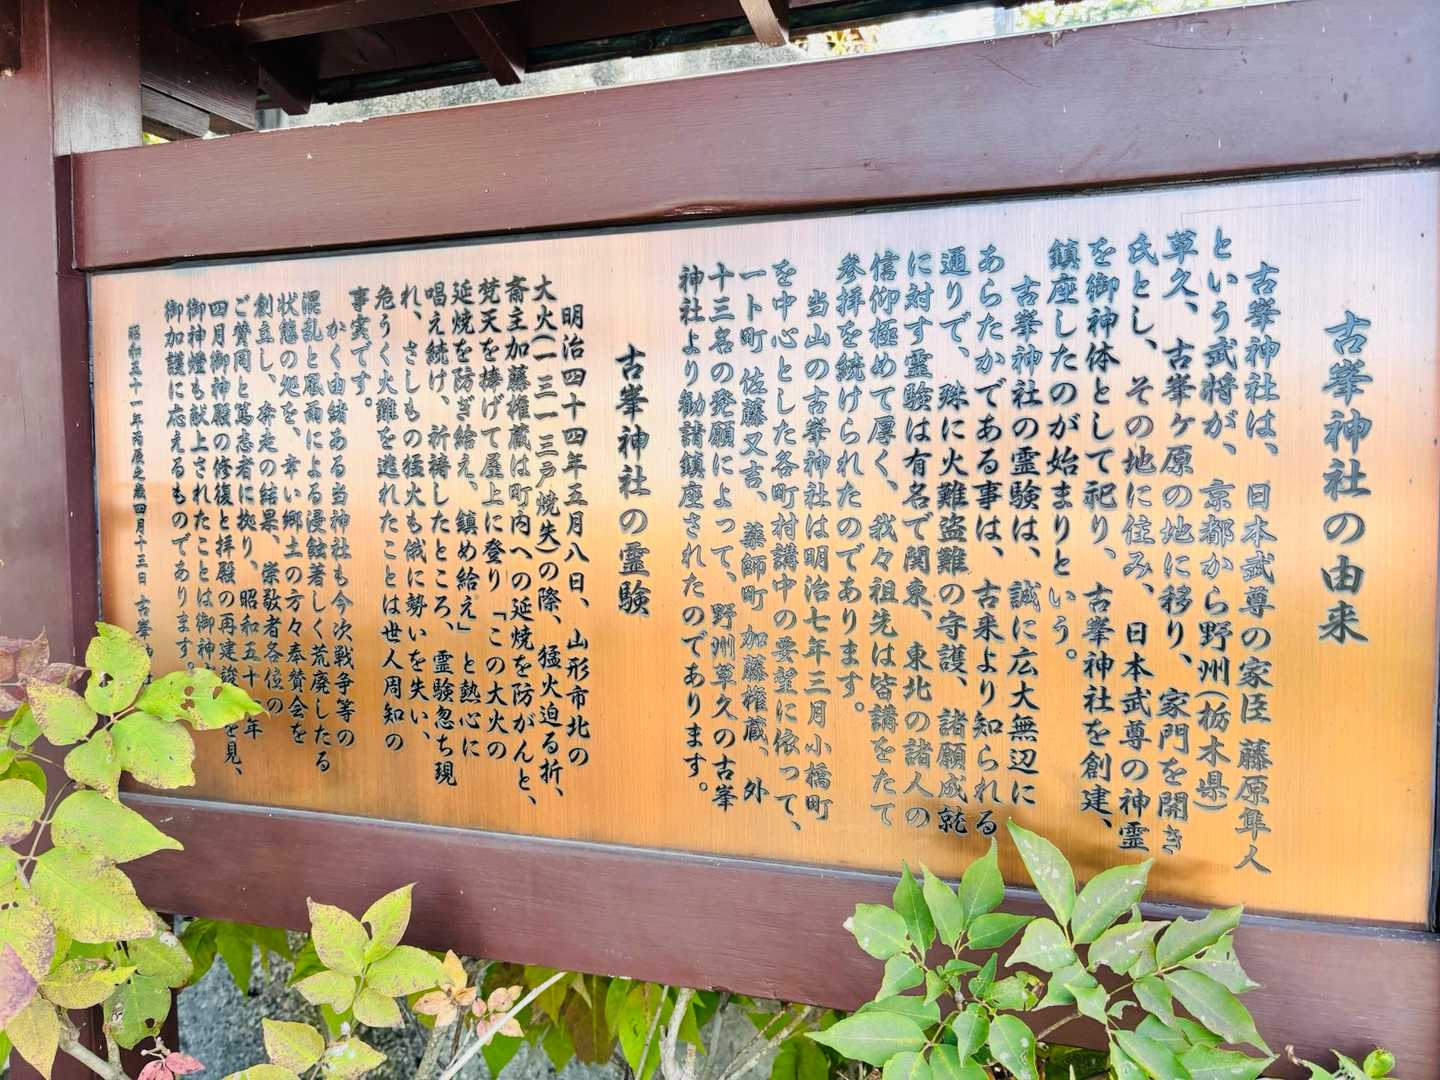 古峯神社の由来
古峯神社は、日本武尊の家臣 藤原隼人
という武将が、京都から野州(栃木県)
草久、古峯ヶ原の地に移り、家門を開き
氏とし、その地に住み、日本武尊の神霊
を御神体として祀り、古峯神社を創建、
鎮座したのが始まりという。
古峯神社の霊験は、誠に広大無辺に
あらたかである事は、古来より知られる
通りで、殊に火難盗難の守護、諸願成就
に対す霊験は有名で関東、東北の諸人の
信仰極めて厚く、我々祖先は皆講をたて
参拝を続けられたのであります。
当山の古峯神社は明治七年三月小橋町
を中心とした各町村講中の要望に依って、
一ト町 佐藤又吉、薬師町 加藤権蔵、外
十三名の発願によって、野州草久の古峯
神社より勧請鎮座されたのであります。
古峯神社の霊験
明治四十四年五月八日、山形市北の
大火(一三一三戸焼失)の際、猛火迫る折、
斎主加藤権蔵は町内への延焼を防がんと、
梵天を捧げて屋上に登り「この大火の
延焼を防ぎ給え、鎮め給え」と熱心に
唱え続け、祈祷したところ、霊験忽ち現
れ、さしもの猛火も俄に勢いを失い、
危うく火難を逃れたことは世人周知の
事実です。
かく由緒ある当神社も今次戦争等の
混乱と風雨による浸蝕著しく荒廃したる
状態の処を、幸い郷土の方々奉賛会を
創立し、奔走の結果、崇敬者各位の
ご賛同と篤志者に拠り、昭和五十年
四月御神殿の修復と拝殿の再建竣を見、
御神燈も献上されたことは御神
御加護に応えるものであります。
昭和五十一年丙辰之歳四月十三日 古峯神社